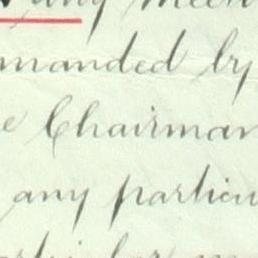 any meet
manded by
e Chairman
any particu